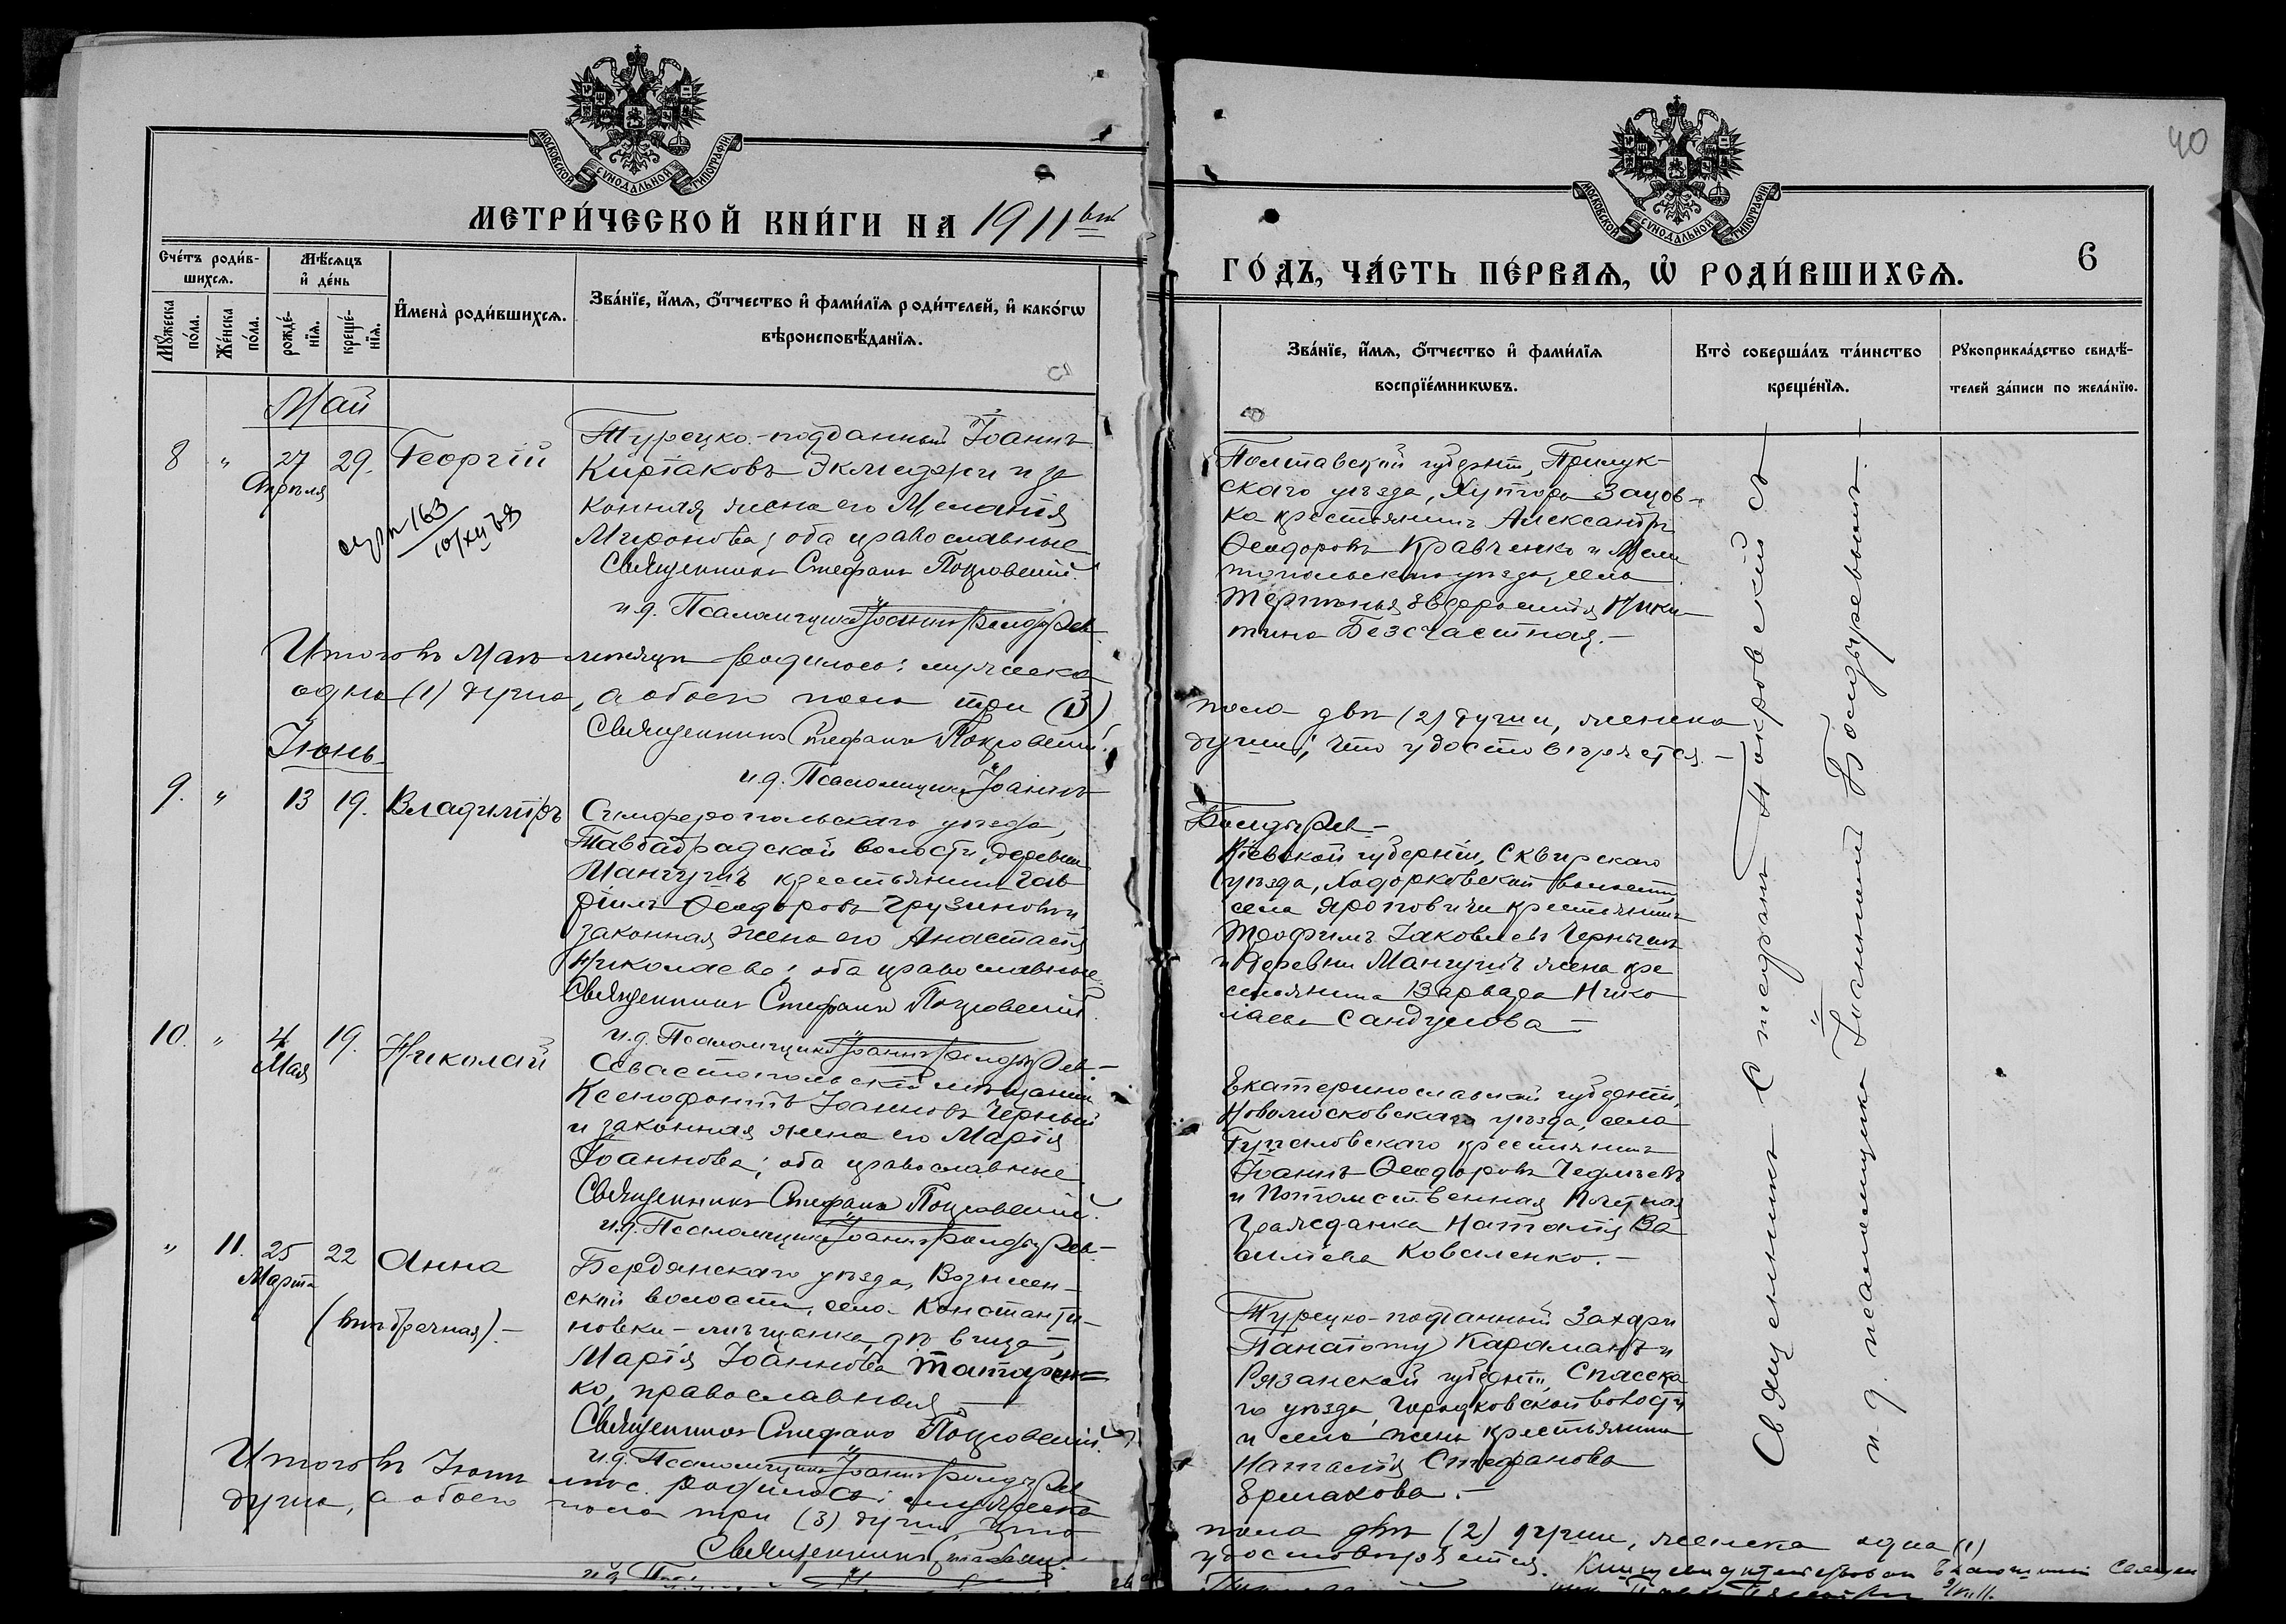 МОСКОВСКОЙ СУНОДАЛЬНОЙ ТИПОГРАФІИ
МЕТРИ́ЧЕСКОЙ КНИ́ГИ НА 1911
Сче́тъ роди́в-
шихсѧ.
Мѣ́сѧцъ
и҆ де́нь
Мꙋ́жеска
по́ла.
Же́нска
по́ла.
рожде́-
нїѧ.
креще́-
нїѧ.
И҆мена̀ роди́вшихсѧ.
Зва́нїе, и҆́мѧ, ѻ҆́тчество и҆ фами́лїѧ роди́телей, и҆ како́гѡ
вѣроисповѣ́данїѧ.
Май
8 " 27 29. Георгій
Апрѣля
Турецко-подданный Іоаннъ
Киріаковъ Экмеджи и за
конная жена его Меланія
Миронова; оба православные
Священникъ Стефанъ Покровскій.
и.д. Псаломщика Іоаннъ Болдырев
Итого въ Маѣ мѣсяцѣ родилось: мужеска
одна (1) душа, а обоего пола три (3)
Священникъ Стефанъ Покровскій.
и.д. Псаломщика Іоаннъ
Іюнь
9. " 13 19. Владиміръ
Симферопольскаго уѣзда,
волости, деревни
Мангушъ крестьянинъ Гав
ріилъ Ѳеодоровъ Грузиновъ и
законная жена его Анастасія
Николаева; оба православные.
Священникъ Стефанъ Покровскій.
и.д. Псаломщика Іоаннъ Болдырев
10. " 4 19. Николай
Мая
Севастопольскій мѣщанинъ
Ксенофонтъ Іоанновъ Черный
и законная жена его Марія
Іоаннова; оба православные
Священникъ Стефанъ Покровскій.
и.д. Псаломщика Іоаннъ Болдырев
" 11. 25 22 Анна
Марта
(внѣбрачная).
Бердянскаго уѣзда, Вознесен-
ской волости, села Константи-
новки - мѣщанка дѣвица
Марія Іоаннова Татарен
ко, православная
Священникъ Стефанъ Покровскій.
и.д. Псаломщика Іоаннъ Болдырев
Итого въ Іюнѣ мѣс. родилось: мужеска
душа, а обоего пола три (3) души, что
Священникъ
40
МОСКОВСКОЙ СУНОДАЛЬНОЙ ТИПОГРАФІИ
6
ГО́ДЪ, ЧА́СТЬ ПЕ́РВАѦ, Ѽ РОДИ́ВШИХСѦ.
Зва́нїе, и҆́мѧ, ѻ҆́тчество и҆ фами́лїѧ
воспрїе́мникѡвъ.
Кто̀ соверша́лъ та́инство
креще́нїѧ.
Рꙋкоприкла́дство свидѣ́-
телей за́писи по жела́нїю.
Полтавской губерніи, Прилук-
скаго уѣзда, Хутора Зацов-
ка крестьянинъ Александръ
Ѳеодоровъ Кравченко и Мели
топольскаго уѣзда, села
Терпенья Евдокія Ники
тина Безсчастная.-
пола двѣ (2) души, женска
души; что удостовѣряется.-
Болдырев-
Кіевской губерніи, Сквирскаго
уѣзда, Ходорковской волости,
села Яроповичи крестьянинъ
Трофимъ Іаковлевъ
и Деревни Мангушъ жена кре
стьянина Варвара Нико
лаева Сандулова-
Екатеринославской губерніи,
Новомосковскаго уѣзда, села
Гупаловскаго крестьянинъ
Іоаннъ Ѳеодоровъ
и Потомственная Почетная
Гражданка Наталія Ва
сильева Коваленко.-
Турецко-подданный Захари
Панаіоту Караманъ и
Рязанской губерніи, Спасска
го уѣзда, волости
и села жена крестьянина
Наталія Стефанова
Ермакова.-
пола двѣ (2) души, женска одна (1)
удостовѣряется.
Священникъ Стефанъ Покровскій
и д. псаломщика Іоанній Болдыревъ.